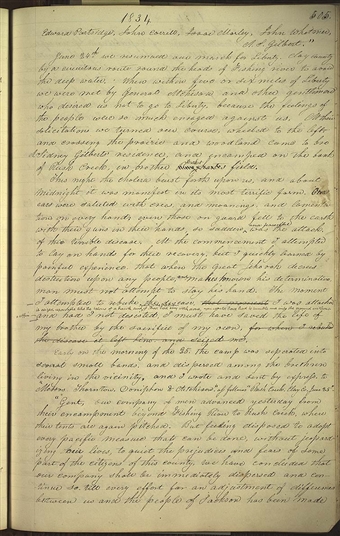 1834
606.
Edward Partridge, John Corrill, Isaac Morley, John Whitmer,
A. S. Gilbert."
June 24th we resumed our march for Liberty, Clay county
by a circuitous route round the heads of Fishing River to avoid
the deep water. When within five or six miles of Liberty
we were met by General Atchison and other gentlemen
who desired us not to go to Liberty, because the feelings of
the people were so much enraged against us. At their
solicitations we turned our course, wheeled to the left
and crossing the prairie and woodland came to bro
Sidney Gilberts residence, and encamped on the bank
of Rush Creek, in brother field,
This night the cholera burst forth upon us, and about
midnight it was manifest in its most terrific form. Our
ears were saluted with cries and moanings, and lamenta
tions on every hand; even those on guard fell to the earth
with their guns in their hands, so sudden and powerful was the attack
of this terrible disease. At the commencement I attempted
to lay on hands for their recovery, but I quickly learned by
painful experience, that when the great Jehovah decrees
destruction upon any people, makes known his determination
man must not attempt to stay his hand. The moment
I attempted to rebuke the disease, that moment I was attacked
and had I not desisted I must have saved the life of
my brother by the sacrifice of my own, for when I rebuked
the disease it left him and seized me,
Early on the morning of the 25, the camp was separated into
several small bands, and dispersed among the brethren
living in the vicinity, and I wrote and sent by express to
"Messrs Thornton, Doniphan & Atchison" as follows, Rush Creek, Clay Co June 25
"Gent, Our company of men advanced yesterday from
their encampment beyond Fishing River to Rush Creek, where
their tents are again pitched. But feeling disposed to adopt
every pacific measure that can be done, without jeopard
izing our lives, to quiet the prejudices and fears of some
part of the citizens of this county, we have concluded that
our company shall be immediately dispersed and con
tinue so, till every effort for an adjustment of differences
between us and the people of Jackson has been made